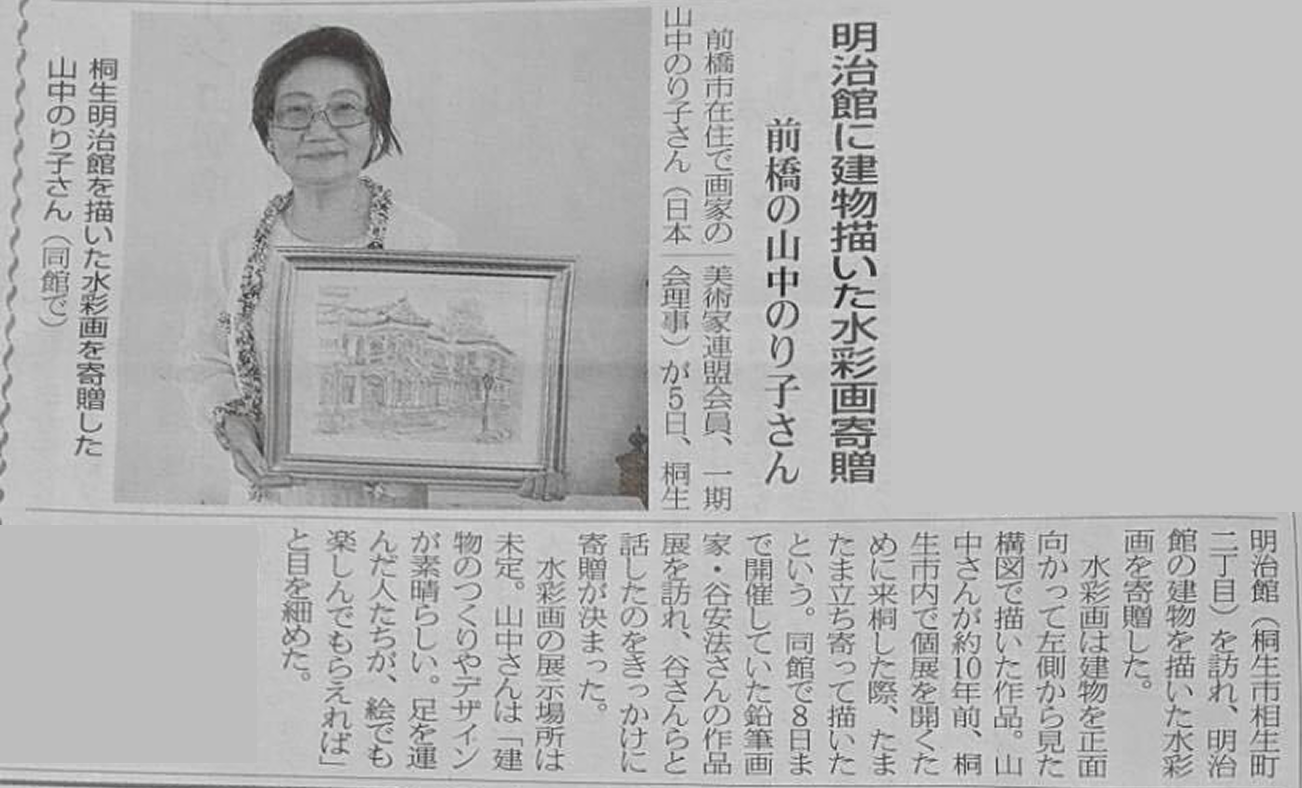 明治館に建物描いた水彩画寄贈
前橋の山中のり子さん
前橋市在住で画家の
山中のり子さん（日本
美術家連盟会員、一期
会理事）が5日、桐生
明治館（桐生市相生町
二丁目）を訪れ、明治
館の建物を描いた水彩
画を寄贈した。
水彩画は建物を正面
向かって左側から見た
構図で描いた作品。山
中さんが約10年前、桐
生市内で個展を開くた
めに来桐した際、たま
たま立ち寄って描いた
という。同館で8日ま
で開催していた鉛筆画
家・谷安法さんの作品
展を訪れ、谷さんらと
話したのをきっかけに
寄贈が決まった。
水彩画の展示場所は
未定。山中さんは「建
物のつくりやデザイン
が素晴らしい。足を運
んだ人たちが、絵でも
楽しんでもらえれば」
と目を細めた。
桐生明治館を描いた水彩画を寄贈した
山中のり子さん（同館で）